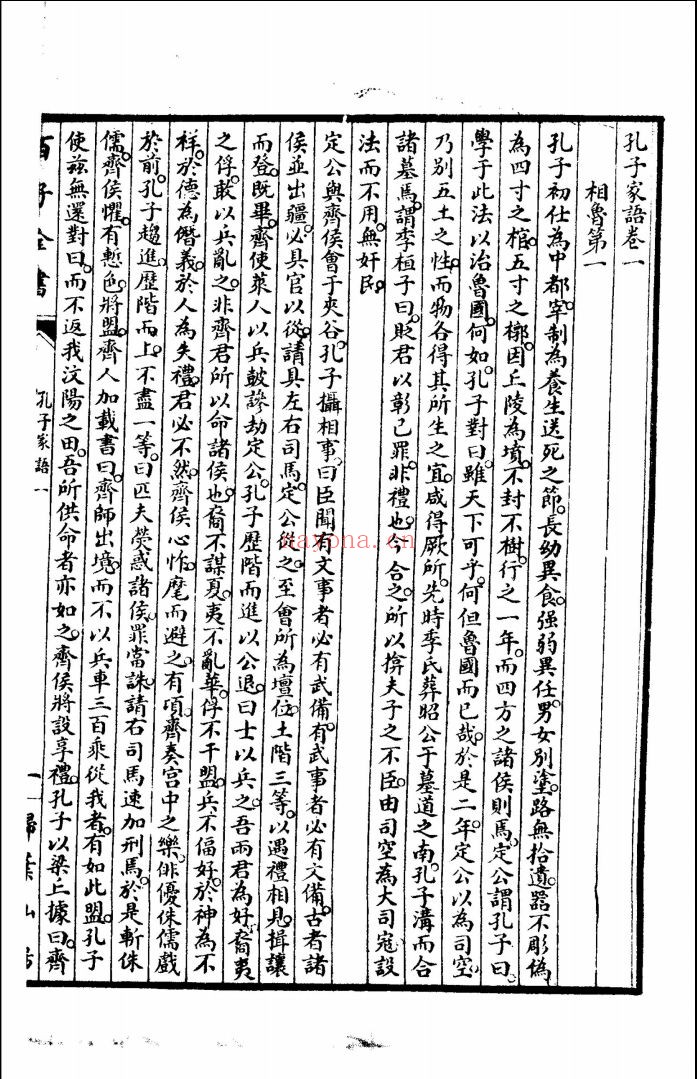 孔子家語卷一
相魯第一
孔子初仕為中都宰制為養生送死之節長幼異食强弱異任男女別塗路無拾遺器不彫僞
為四寸之棺五寸之槨因丘陵為墳不封不樹行之一年而四方之諸侯則焉定公謂孔子曰
學于此法以治魯國何如孔子對曰雖天下可乎何但魯國而已哉於是二年定公以為司空
乃別五土之性而物各得其所生之宜咸得厥所先時季氏葬昭公于墓道之南孔子溝而合
諸墓焉謂季桓子曰貶君以彰己罪非禮也今合之所以揜夫子之不臣由司空為大司寇設
法而不用無奸民
定公與齊侯會于夾谷孔子攝相事曰臣聞有文事者必有武備有武事者必有文備古者諸
侯並出疆必具官以從請具左右司馬定公從之至會所為壇位土階三等以遇禮相見揖讓
而登既畢齊使萊人以兵鼓謲劫定公孔子歷階而進以公退曰士以兵之吾兩君為好裔夷
之俘敢以兵亂之非齊君所以命諸侯也裔不謀夏夷不亂華俘不干盟兵不偪好於神為不
祥於德為愆義於人為失禮君必不然齊侯心怍麾而避之有頃齊奏宮中之樂俳優侏儒戲
於前孔子趨進歷階而上不盡一等曰匹夫熒惑諸侯罪當誅請右司馬速加刑焉於是斬侏
儒齊侯懼有慙色將盟齊人加載書曰齊師出境而不以兵車三百乘從我者有如此盟孔子
使茲無還對曰而不返我汶陽之田吾所供命者亦如之齊侯將設享禮孔子以梁丘據曰齊
百子全書
孔子家語一
一
掃葉山房
mayona.cn